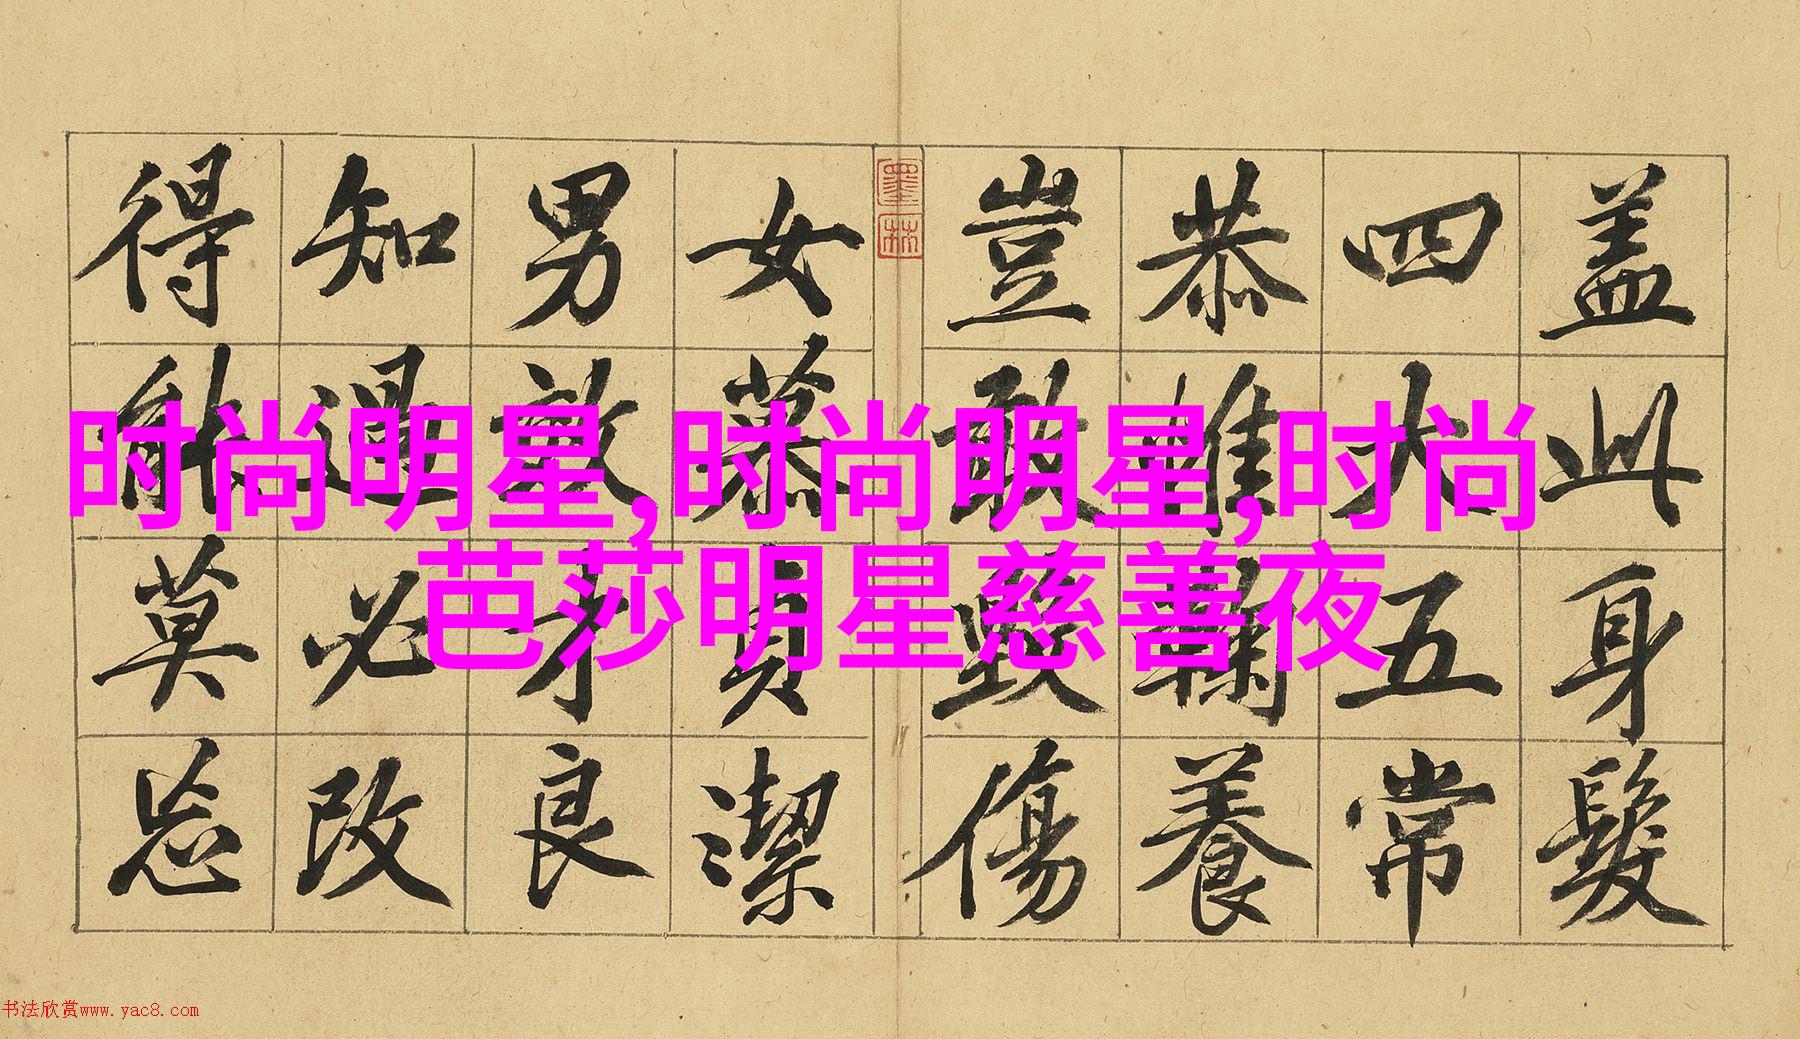 时尚明星,时尚明星,时尚
芭莎明星慈善夜
盖此身髮
四大五常
恭惟鞠養
豈敢毀傷
墨林
女慕貞潔
男效才良
知過必改
得能莫忘
书法欣赏www.yac8.com